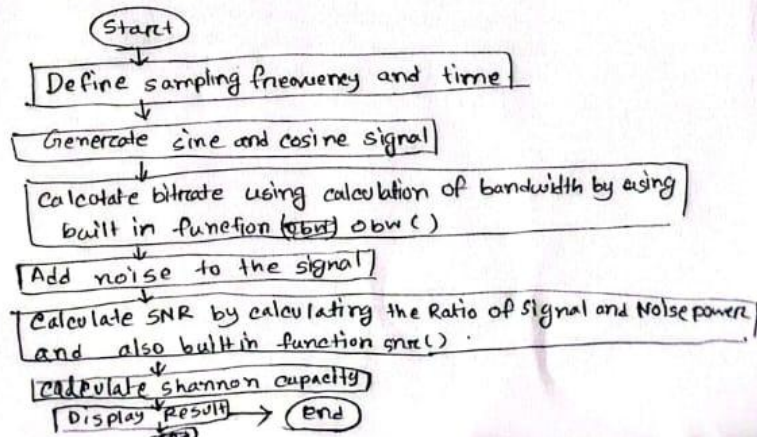 Start
Define sampling frequency and time
Generate sine and cosine signal
Calcutate bitrate using calculation of bandwidth by using
built in function obw ()
Add noise to the signal
Calculate SNR by calculating the Ratio of signal and Noise power
and also built in function snr() .
Calculate shannon capacity
Display Result
End